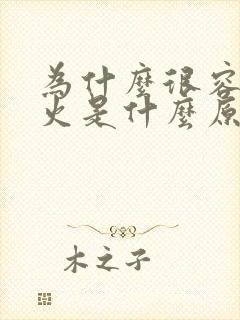 為什麼很容
火是什麼原
木之子